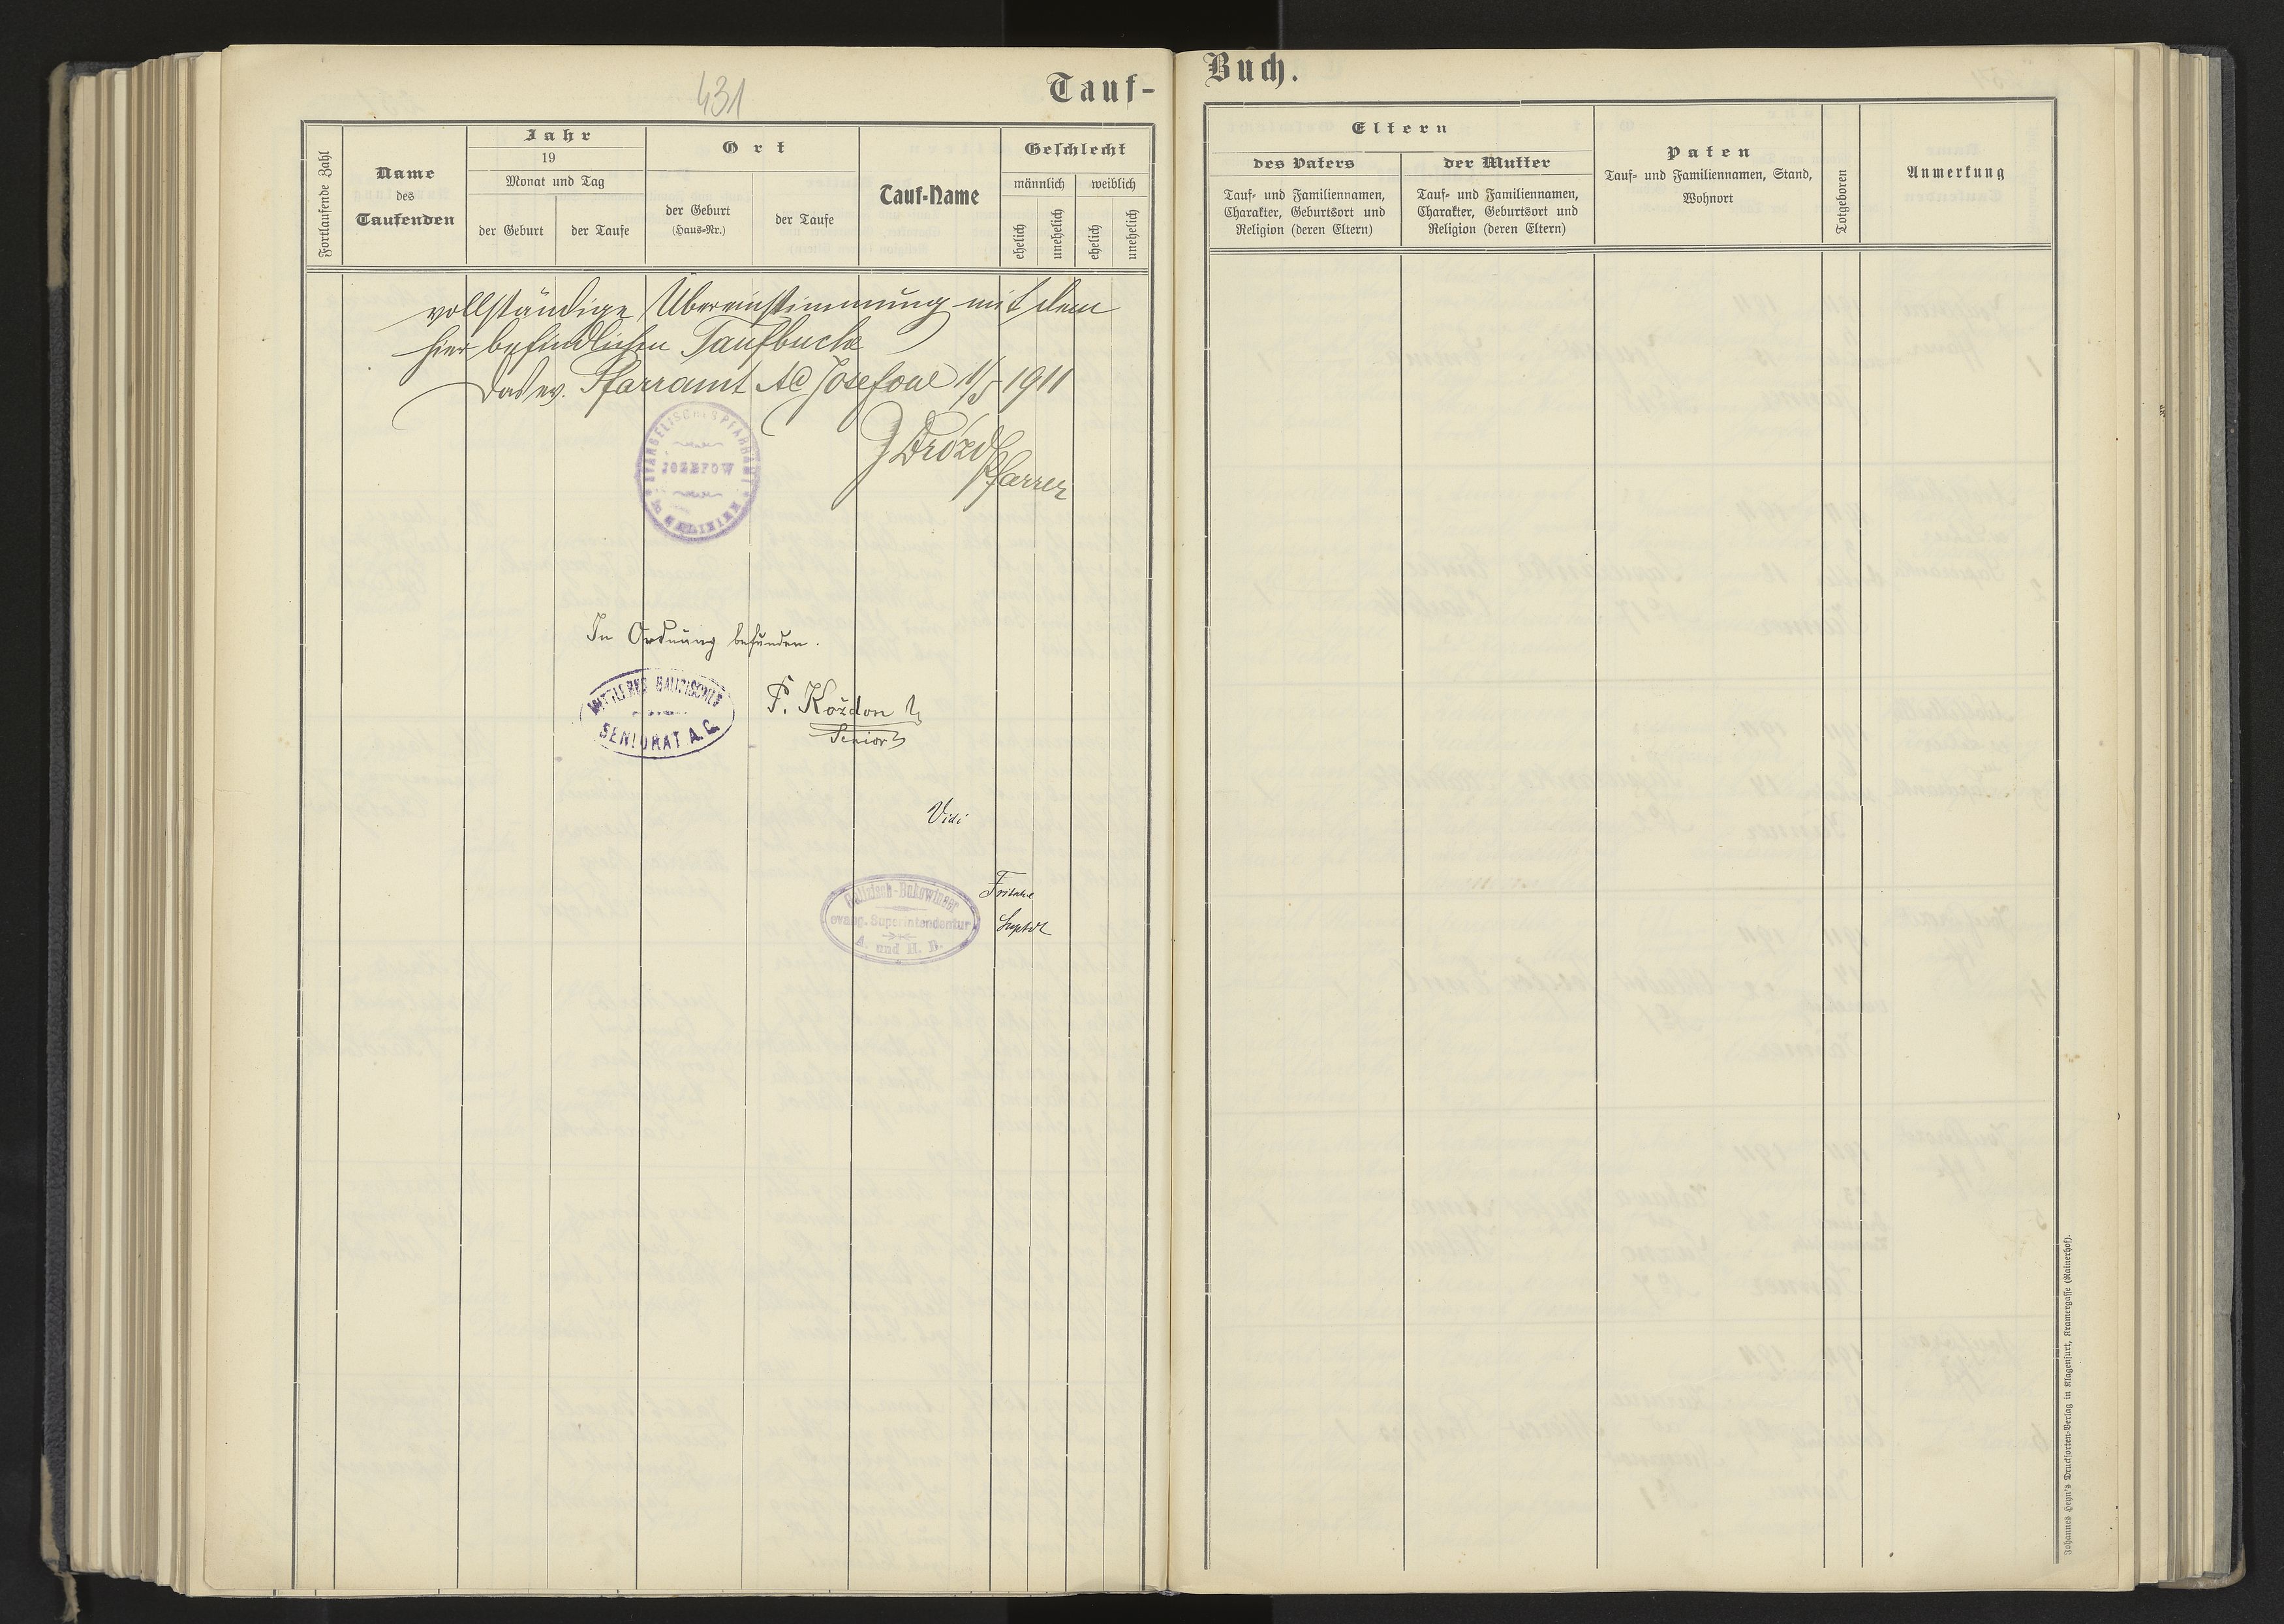 431
Tauf-
Fortlaufende Zahl
Name
des
Taufenden
Jahr
19
Monat und Tag
der Geburt
der Taufe
Ort
der Geburt
(Haus-Nr.)
der Taufe
Tauf-Name
Geschlecht
männlich
weiblich
ehelich
unehelich
ehelich
unehelich
vollständige Übereinstimmung mit dem
hier befindlichen Taufbuche
Das ev. Pfarramt AC Josefow 1/5 1911
EVANGELISCHES PFARRAMT
JOZEFOW
J Drózd
Pfarrer
In Ordnung befunden.
MITTLERES GALIZISCHES
SENIORAT A. C.
P. Koždon
Senior
Vidi
Galizisch-Bukowinaer
evang. Superintendentur
A. und H. B.
Fritsche
Suptdt
Buch.
Eltern
des Vaters
Tauf- und Familiennamen,
Charakter, Geburtsort und
Religion (deren Eltern)
der Mutter
Tauf- und Familiennamen,
Charakter, Geburtsort und
Religion (deren Eltern)
Paten
Tauf- und Familiennamen, Stand,
Wohnort
Totgeboren
Anmerkung
Johannes Heyn's Drucksorten-Verlag in Klagenfurt, Kramergasse (Rainerhof).